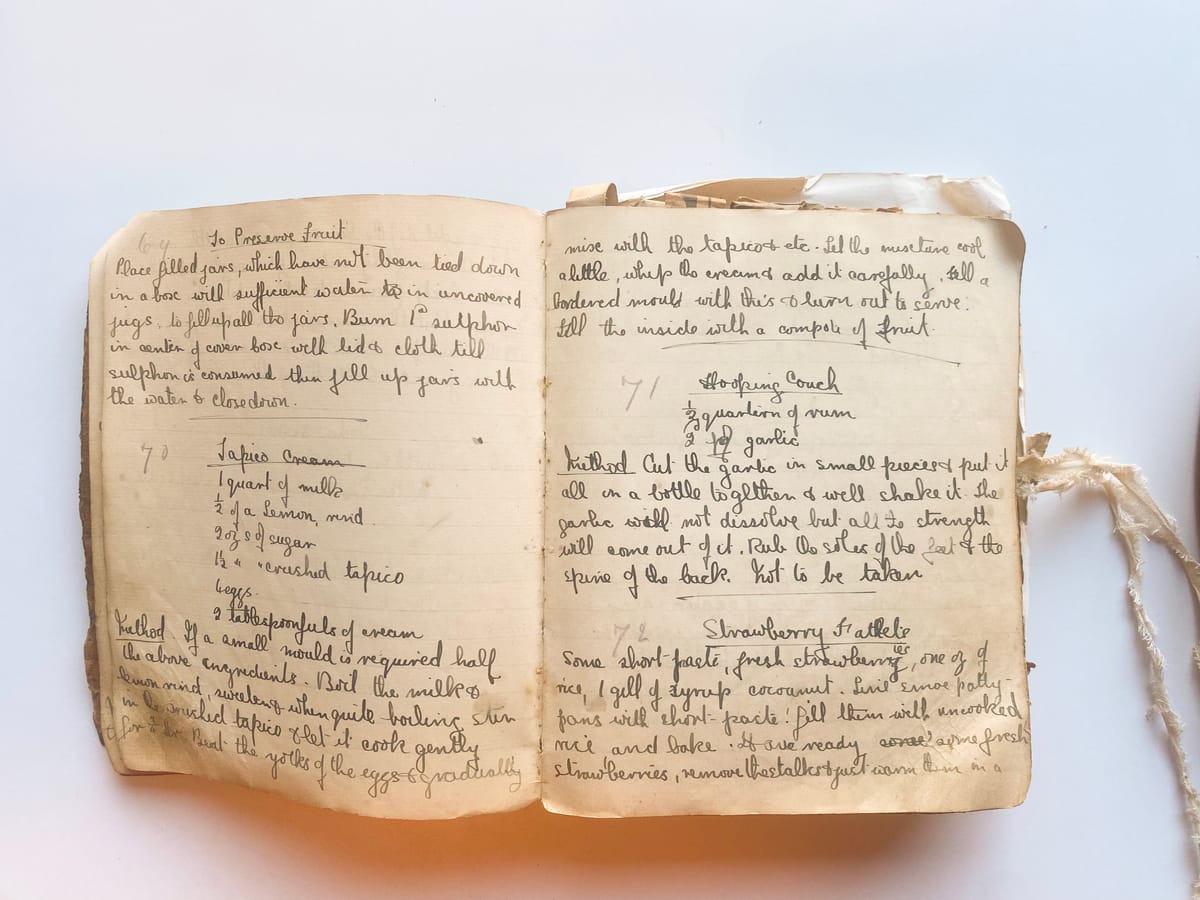 69 To Preserve Fruit
Place filled jars, which have not been tied down
in a box with sufficient water to in uncovered
jugs, to fill up all the jars. Burn 1d sulphor
in center of cover box with lid & cloth till
sulphor is consumed then fill up jars with
the water & close down.
70 Tapico Cream
1 quart of milk
½ of a Lemon, rind
2 ozs of sugar
1½ " " crushed tapico
4 eggs.
2 tablespoonfuls of cream
Method. If a small mould is required half
the above ingredients. Boil the milk &
lemon rind, sweeten & when quite boiling stir
in the crushed tapico & let it cook gently
for hr. Beat the yolks of the eggs & gradually
mix with the tapico & etc. Let the mixture cool
a little, whip the cream & add it carefully. fill a
bordered mould with this & turn out to serve.
Fill the inside with a compote of fruit.
71 Hooping Couch
½ quartern of rum
2 of garlic
Method Cut the garlic in small pieces & put it
all in a bottle togther & well shake it. The
garlic will not dissolve but all the strength
will come out of it. Rub the soles of the feet & the
spine of the back. Not to be taken
72 Strawberry
Some short paste, fresh strawberries, one oz of
rice, 1 gill of syrup cocoanut. Line some patty-
pans with short-paste. fill them with uncooked
rice and bake. Have ready some some fresh
strawberries, remove the stalks & just warm them in a